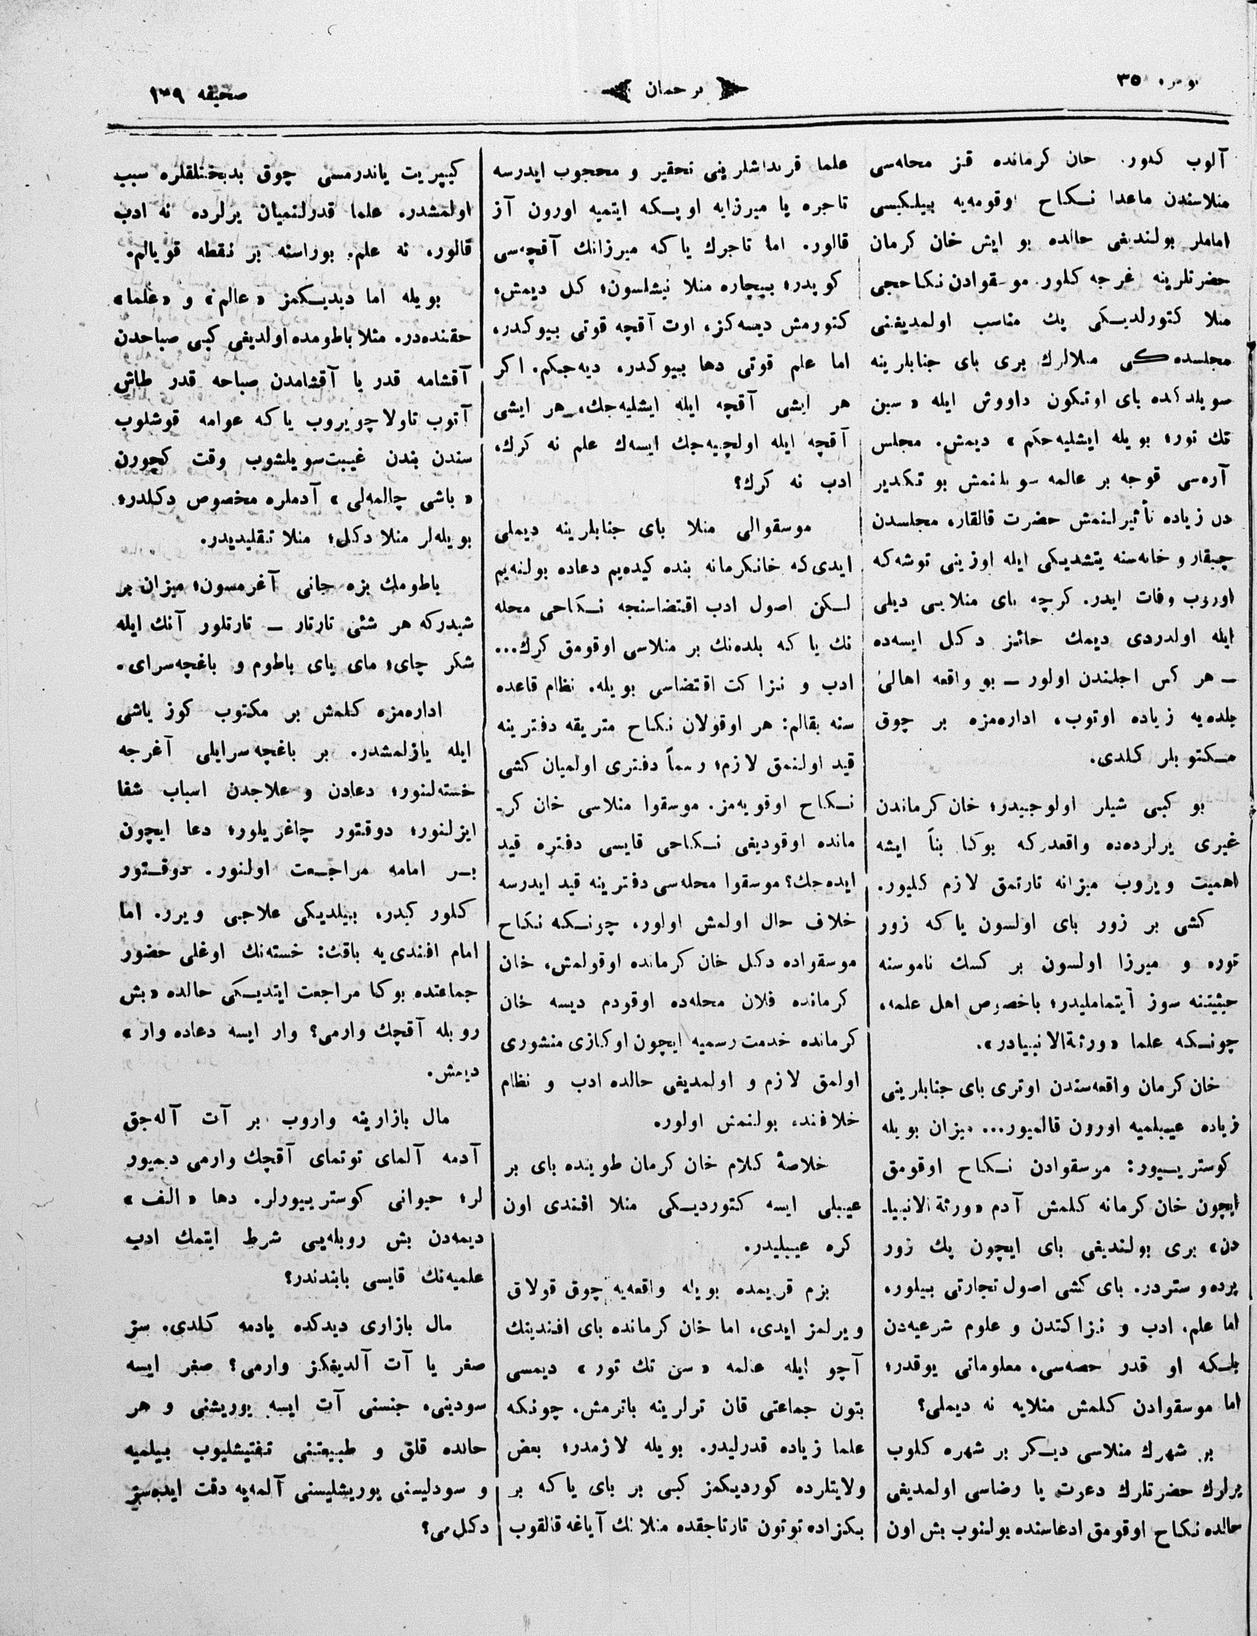 نومرو ٣٥
ترجمان
صحیفه ١٣٩
آلوب کدور. خان کرمانده قز محله‌سی
منلاسندن ماعدا نکاح اوقومه‌یه بیلیکسی
اماملر بولندیغی حالده بو ایش خان کرمان
حضرتلرینه غرجه کلور. موسقوادن نکاحجی
منلا کتورلدیکی پك مناسب اولمدیغنی
مجلسده‌کی منلالرك بری بای جنابلرینه
سویلدکده بای اوتکون داووش ایله «سین
تك تور؛ بویله ایشلیه‌جکم» دیمش. مجلس
آره‌سی قوجه بر عالمه سویلنمش بو تکدیر
دن زیاده تأثیرلنمش حضرت قالقار، مجلسدن
چیقار و خانه‌سنه یتشدیکی ایله اوزینی توشه‌که
اوروب وفات ایدر. کرچه بای منلایی دیلی
ایله اولدردی دیمك جائز دکل ایسه‌ده
ـ هر کس اجلندن اولور ـ بو واقعه اهالئ
بلده‌یه زیاده اوتوب، اداره‌مزه بر چوق
مکتوبلر کلدی.
بو کبی شیلر اولوجیدر؛ خان کرماندن
غیری یرلرده‌ده واقعدرکه بوکا بناً ایشه
اهمیت ویروب میزانه تارتمق لازم کلیور.
کشی بر زور بای اولسون یاکه زور
توره و میرزا اولسون بر کسك ناموسنه
حیثیتنه سوز آیتماملیدر؛ باخصوص اهل علمه،
چونکه علما «ورثة‌الانبیادر».
خان کرمان واقعه‌سندن اوتری بای جنابلرینی
زیاده عیبلمیه اورون قالمیور... میزان بویله
کوستریسیور: موسقوادن نکاح اوقومق
ایچون خان کرمانه کلمش آدم «ورثة الانبیا‌ـ
دن» بری بولندیغی بای ایچون پك زور
پرده و ستردر. بای کشی اصول تجارتی بیلور،
اما علم، ادب و نزاکتدن و علوم شرعیه‌دن
بلکه او قدر حصه‌سی، معلوماتی یوقدر؛
اما موسقوادن کلمش منلایه نه دیملی؟
بر شهرك منلاسی دیکر بر شهره کلوب
یرلرك حضرتلرك دعوت یا رضاسی اولمدیغی
حالده نکاح اوقومق ادعاسنده بولنوب بش اون
علما قرنداشلرینی تحقیر و محجوب ایدرسه
تاجره یا میرزایه اویکه ایتمیه اورون آز
قالور. اما تاجرك یاکه میرزانك آقچه‌سی
کوبدر؛ بیچاره منلا نیشلسون؛ کل دیمش،
کتورمش دیسه‌کز، اوت آقچه قوتی بیوکدر،
اما علم قوتی دها بیوکدر، دیه‌جکم. اکر
هر ایشی آقچه ایله ایشلیه‌جك، هر ایشی
آقچه ایله اولچیه‌جك ایسه‌ك علم نه کرك،
ادب نه کرك؟
موسقوالی منلا بای جنابلرینه دیملی
ایدی‌که خانکرمانه بنده کیده‌یم دعاده بولنه‌یم
لکن اصول ادب اقتضاسنجه نکاحی محله
نك یا که بلده‌نك بر منلاسی اوقومق کرك...
ادب و نزاکت اقتضاسی بویله. نظام قاعده
سنه بقالم: هر اوقولان نکاح متریقه دفترینه
قید اولنمق لازم؛ رسماً دفتری اولمیان کشی
نکاح اوقویه‌مز. موسقوا منلاسی خان کر‌ـ
مانده اوقودیغی نکاحی قایسی دفتره قید
ایده‌جك؟ موسقوا محله‌سی دفترینه قید ایدرسه
خلاف حال اولمش اولور، چونکه نکاح
موسقواده دکل خان کرمانده اوقولمش، خان
کرمانده فلان محله‌ده اوقودم دیسه خان
کرمانده خدمت رسمیه ایچون اوکازی منشوری
اولمق لازم و اولمدیغی حالده ادب و نظام
خلافنده بولنمش اولور.
خلاصهٔ کلام خان کرمان طوینده بای بر
عیبلی ایسه کتوردیکی منلا افندی اون
کره عیبلیدر.
بزم قریمده بویله واقعه‌یه چوق قولاق
ویرلمز ایدی، اما خان کرمانده بای افندینك
آچو ایله عالمه «سن تك تور» دیمسی
بتون جماعتی قان ترلرینه باترمش. چونکه
علما زیاده قدرلیدر. بویله لازمدر؛ بعض
ولایتلرده کوردیکمز کبی بر بای یاکه بر
بکزاده توتون تارتاجقده منلانك آیاغه قالقوب
کیپریت یاندرمسی چوق بدبختلقلره سبب
اولمشدر. علما قدرلنمیان یرلرده نه ادب
قالور، نه علم. بوراسنه بر نقطه قویالم.
بویله اما دیدیکمز «عالم» و «علما»
حقنده‌در. مثلا باطومده اولدیغی کبی صباحدن
آقشامه قدر یا آقشامدن صباحه قدر طاش
آتوب تاولا چویروب یاکه عوامه قوشلوب
سندن بندن غیبت سویلشوب وقت کچورن
«باشی چالمه‌لی» آدملره مخصوص دکلدر؛
بویله‌لر منلا دکل؛ منلا تقلیدیدر.
باطومك بزه جانی آغرمسون؛ میزان بر
شیدرکه هر شئی تارتار ـ تارتلور آنك ایله
شکر چای؛ مای یای باطوم و باغچه‌سرای.
اداره‌مزه کلمش بر مکتوب کوز یاشی
ایله یازلمشدر. بر باغچه‌سرایلی آغرجه
خسته‌لنور؛ دعادن و علاجدن اسباب شفا
ایزلنور؛ دوقتور چاغریلور؛ دعا ایچون
بر امامه مراجعت اولنور. دوقتور
کلور کیدر، بیلدیکی علاجی ویرر. اما
امام افندی‌یه باقڭ: خسته‌نك اوغلی حضور
جماعتده بوکا مراجعت ایتدیکی حالده «بش
روبله آقچك وارمی؟ وار ایسه دعاده وار»
دیمش.
مال بازارینه واروب بر آت آله‌جق
آدمه آلمای توتمای آقچك وارمی دیمیور
لر؛ حیوانی کوسترییورلر. دها «الف»
دیمه‌دن بش روبله‌یی شرط ایتمك ادب
علمیه‌نك قایسی بابندندر؟
مال بازاری دیدکده یادمه کلدی. سز
صغر یا آت آلدیغکز وارمی؟ صغر ایسه
سودینی، جنسنی آت ایسه یوریشنی و هر
حالده قلق و طبیعتنی تفتیشلیوب بیلمیه
و سودلیسنی یوریشلیسنی آلمه‌یه دقت ایده‌سز
دکل می؟